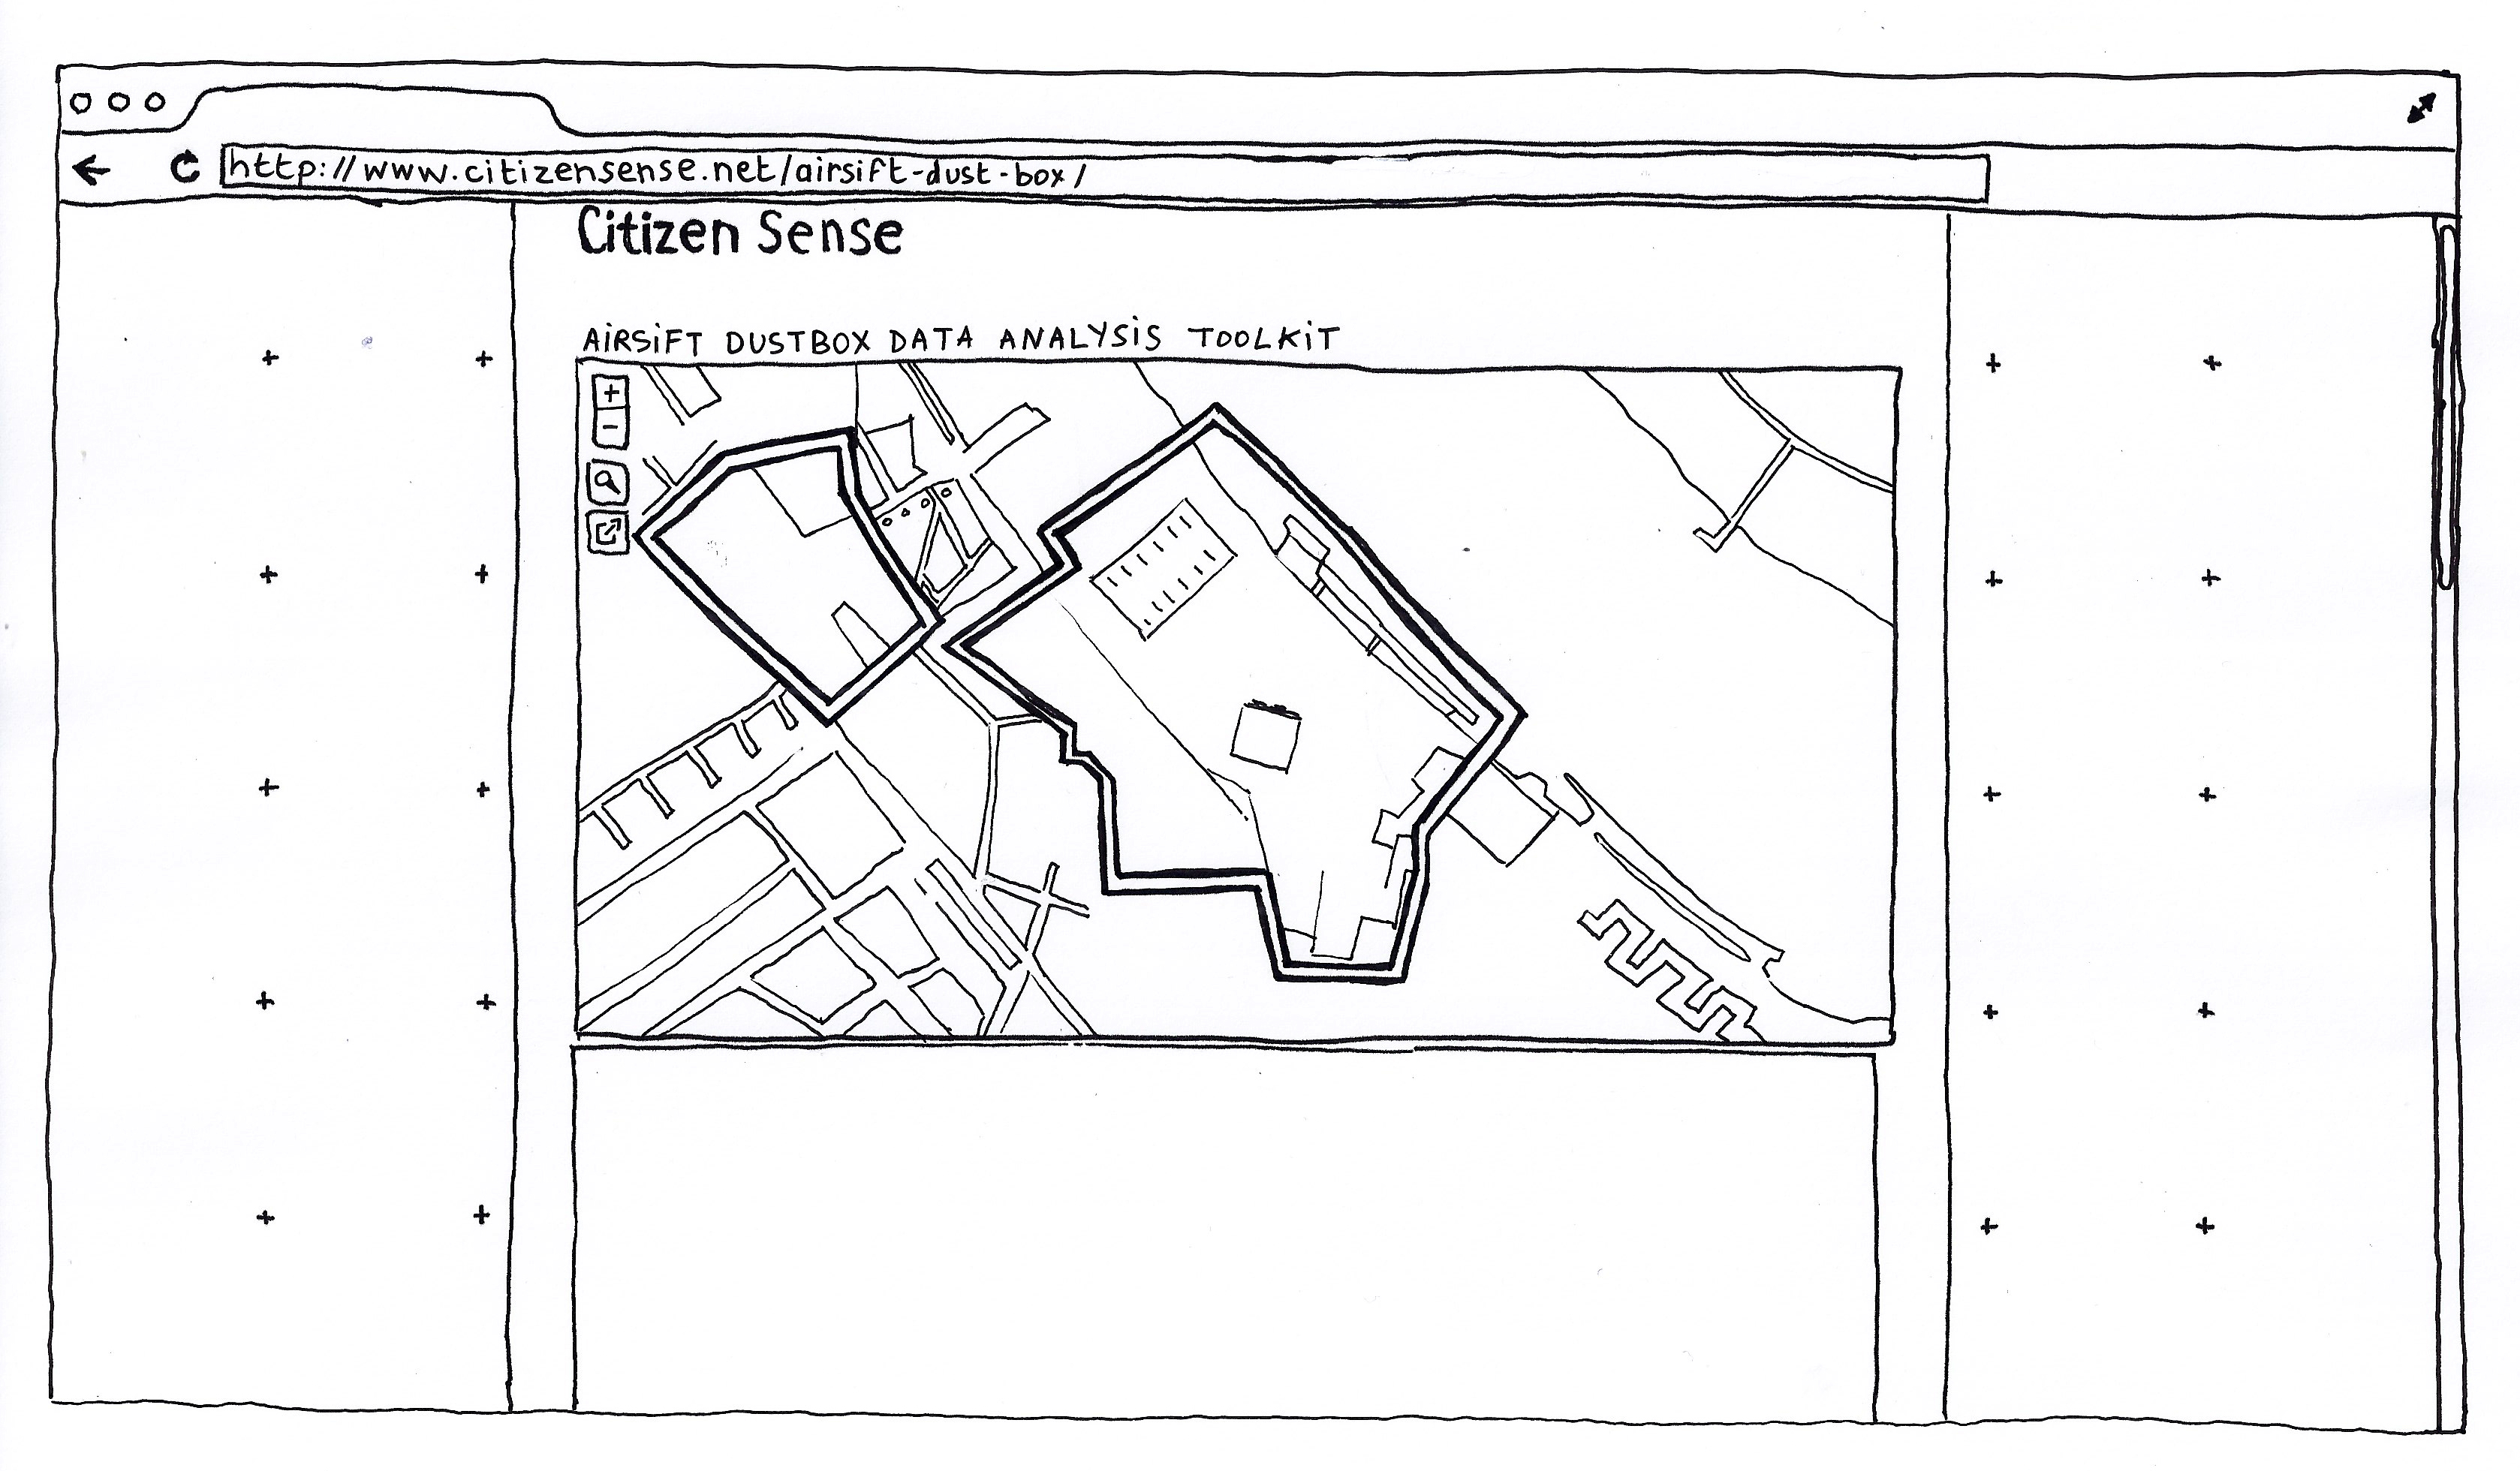 http://www.citizensense.net/airsift-dust-box/
Citizen Sense
AiRSiFT DUSTBOX DATA ANALYSiS TOOLKiT
+
-